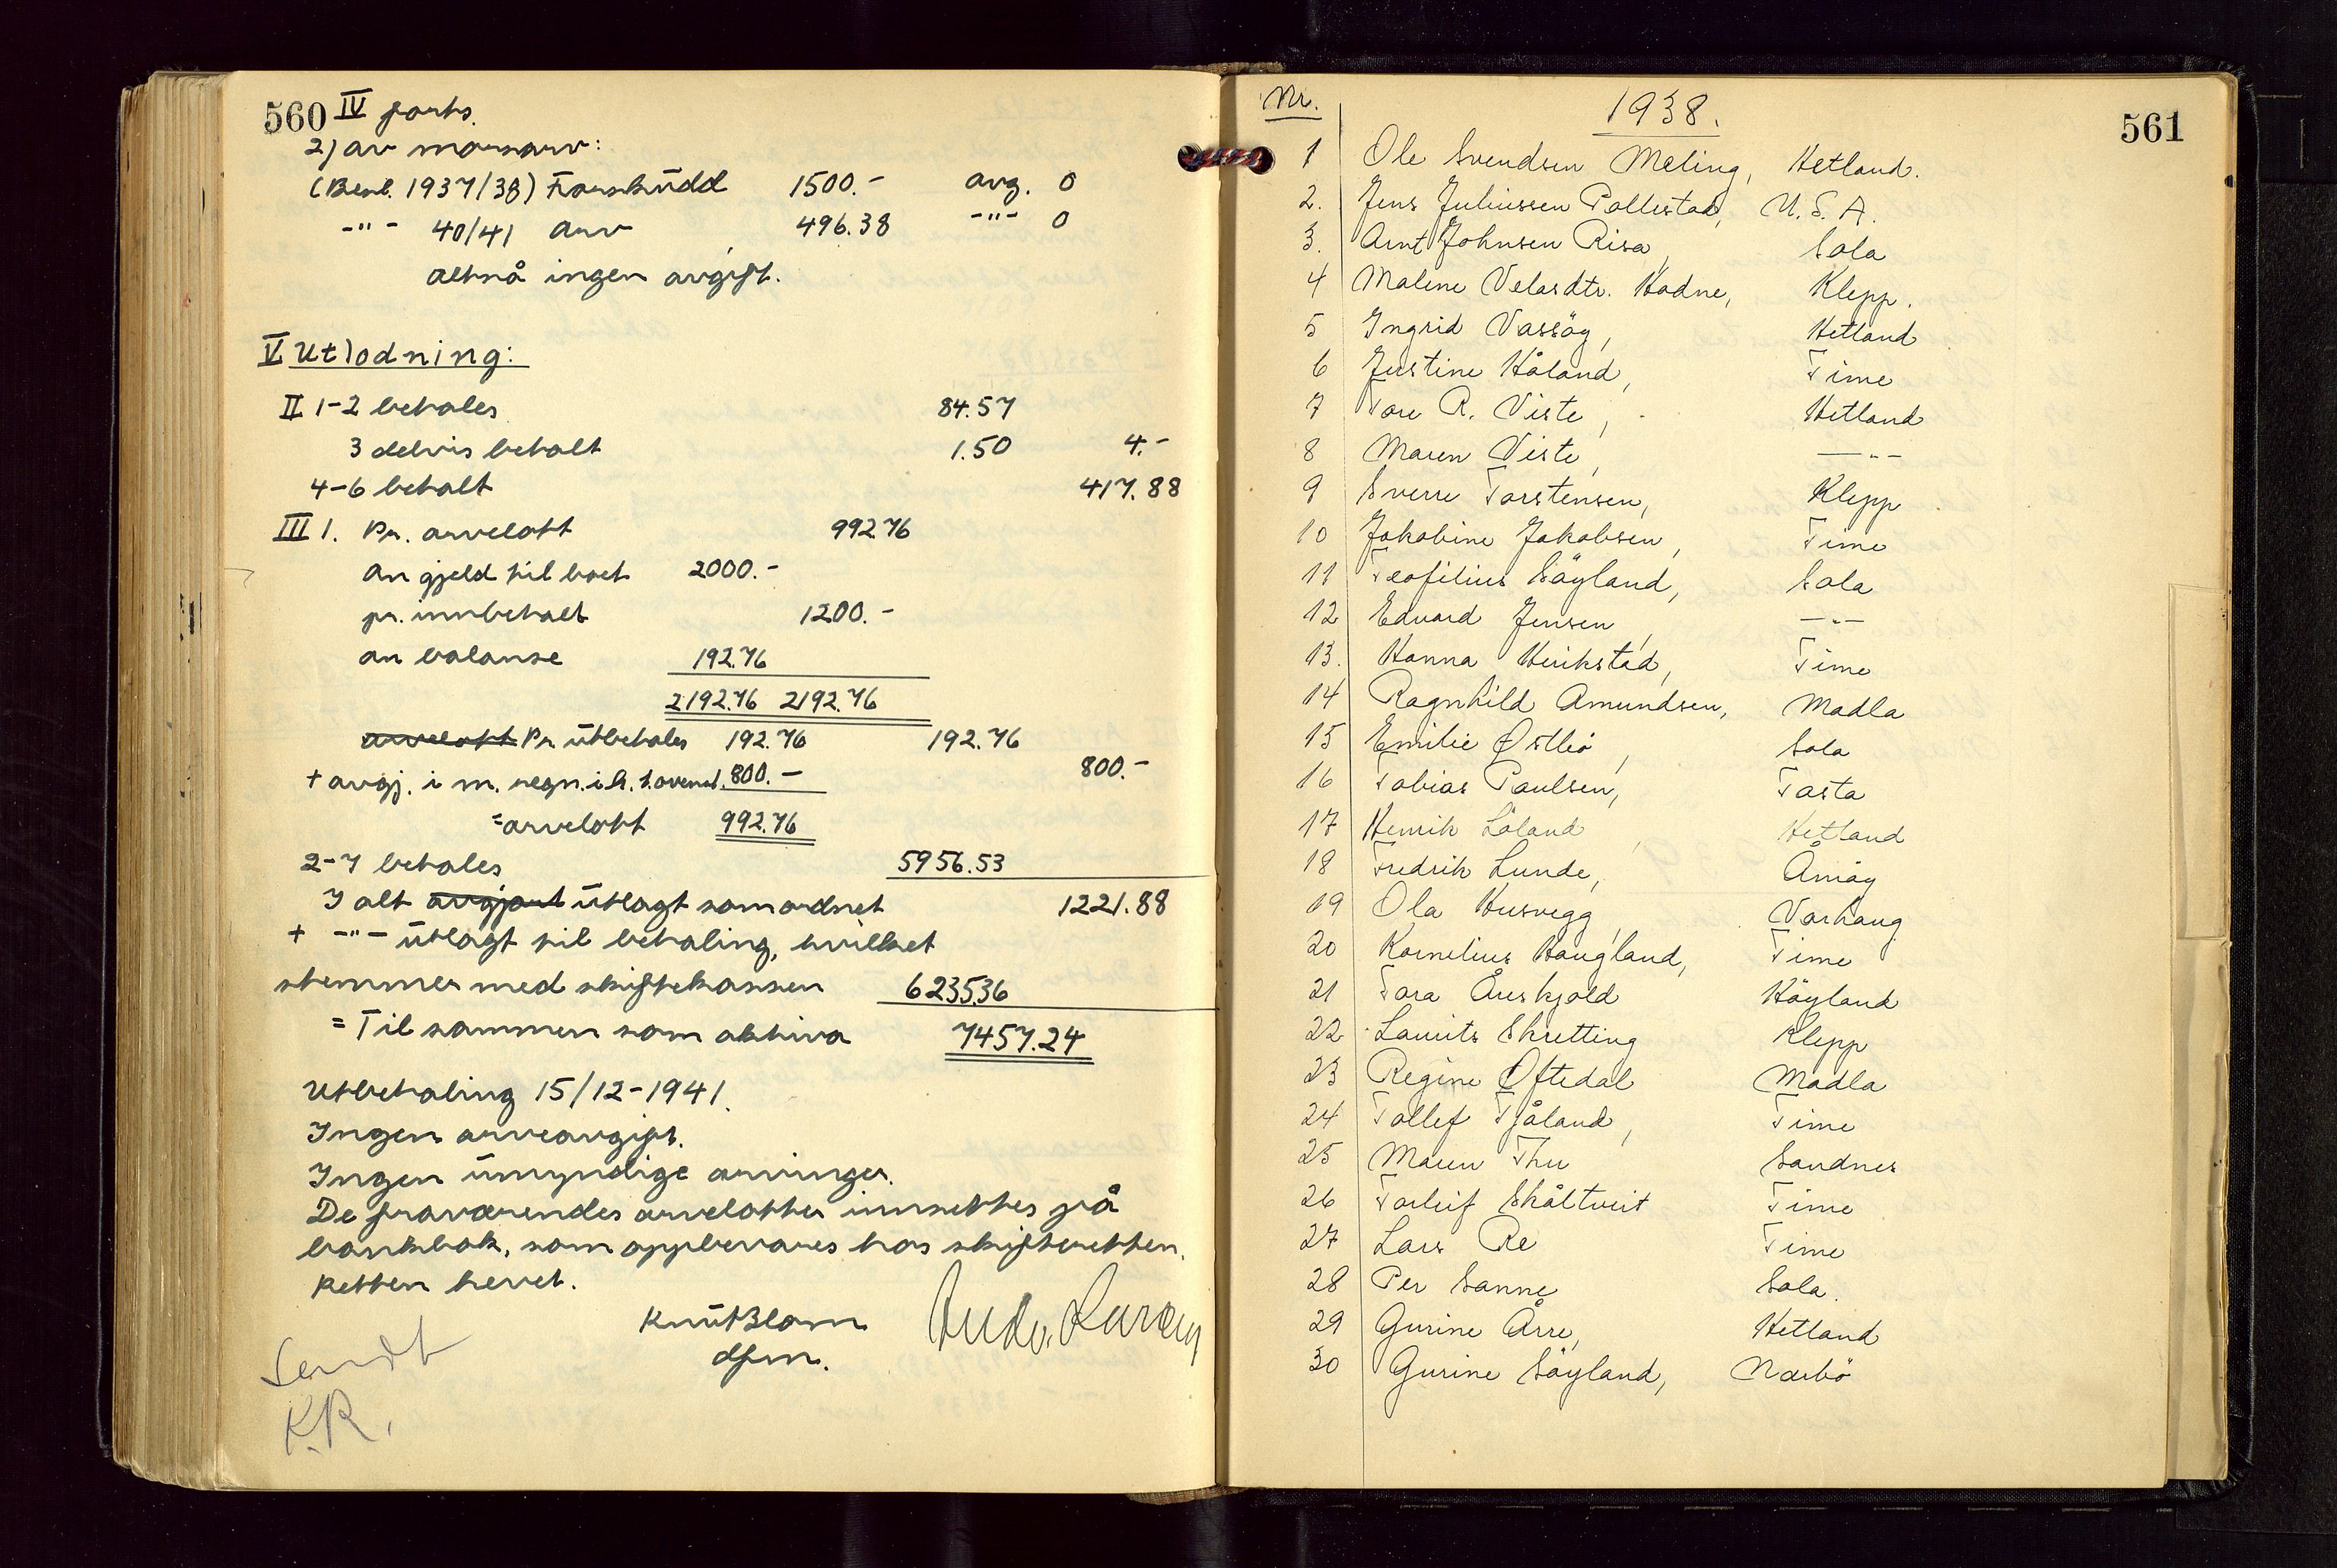 560 IV forts.
2) av morsarv:
(Besl. 1937/38) Forskudd 1500.- avg. 0
-"- 40/41 Arv 496.38 -"- 0
altså ingen avgift.
V Utlodning:
II 1-2 betales 84.57
3 delvis betalt 1.50 4.-
4-6 betalt 417.88
III 1. Pr. arvelott 992.76
an gjeld til boet 2000.-
pr. innbetalt 1200.-
an balanse 192.76
2192.76 2192.76
arvelott Pr. utbetales 192.76 192.76
+ avgj. i m. regn. 800.- 800.-
= arvelott 992.76
2-7 betales 5956.53
I alt avgjort utlagt som ordnet 1221.88
+ -"- utlagt til betaling, hvilket
stemmer med skiftekassen 6235.36
= Tilsammen som aktiva 7457.24
Utbetaling 15/12-1941.
Ingen arveavgift.
Ingen umyndige arvinger.
De fraværendes arvelotter innsettes på
bankbok, som oppbevares hos skifteretten.
Retten hevet.
Knut Blom
dfm.
Sendt
K.R.
Nr. 1938. 561
1 Ole Svendsen Meling, Hetland.
2. Jens Juliussen Pollestad, U.S.A.
3. Arnt Johnsen Risa, Sola
4 Malene Velasdtr. Hodne, Klepp.
5 Ingrid Vassöy, Hetland
6 Justine Håland, Time
7 Tore R. Viste, Hetland
8 Maren Viste, -"-
9 Sverre Torstensen, Klepp
10 Jakobine Jakobsen, Time
11 Teofilius Söyland, Sola
12 Edvard Jensen, -"-
13. Hanna Herikstad, Time
14 Ragnhild Amundsen, Madla
15 Emilie Østbö, Sola
16 Tobias Paulsen, Tasta
17 Henrik Löland, Hetland
18 Fredrik Lunde, Åmöy
19 Ola Husvegg, Varhaug
20 Kornelius Haugland, Time
21 Tora Äreskjold Höyland
22 Lauits Skretting Klepp
23 Regine Oftedal Madla
24 Tollef Tjåland, Time
25 Maren Thu Sandnes
26 Torleif Skåltveit Time
27 Lars Re Time
28 Per Sanne Sola.
29 Gurine Årre, Hetland
30 Gurine Söyland, Nærbö